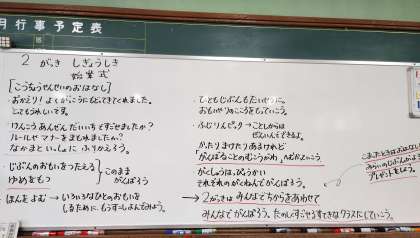 月行事予定表
2 がき しぎょうしき
始業式
[こうちょうせんせいのおはなし]
・おかえり！よくがっこうにもどってきてくれました。
とってもうれしいです。
・けんこうあんぜんだいいちですごせましたか？
ルールやマナーをまもれましたか？
なかまといっしょにふりかえろう。
・じぶんのおもいをつたえる
ゆめをもつ
このまま
がんばろう
・ほんをよむ → いろいろなひとのおもいを
しるために、もうすこしよんでみよう。
・ひともじぶんもたいせつに。
おもいやりのこころをもっていこう。
・ふじりんピック → ことしからは
ぜんいんでできる。
かったりまけたりあるけれど
「がんばることのむこうがわ」へむかっていこう
がっしょうは、
それぞれのがくねんでがんばろう。
→ 2がきはみんなでちからをあわせて
みんなでがんばろう。たのしくすごせるすてきなクラスにしていこう。
こまったときはおはなし
みらいのじぶんがよ
プレゼントをしよう。